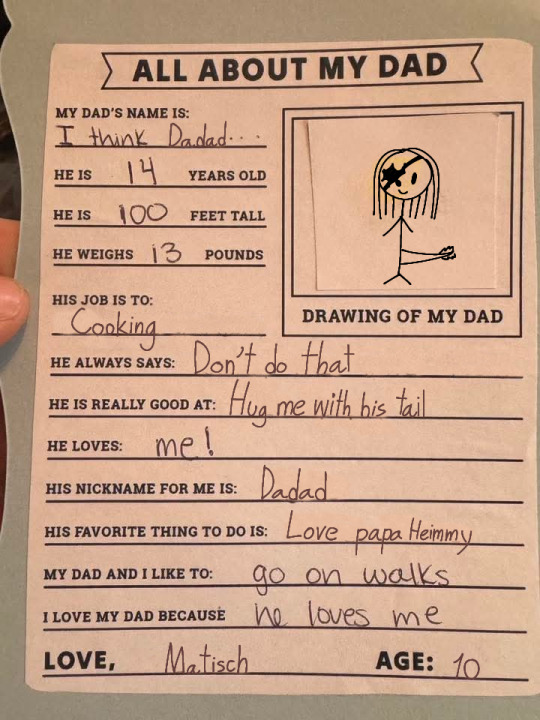 ALL ABOUT MY DAD
MY DAD'S NAME IS:
I think Dadad...
HE IS 14 YEARS OLD
HE IS 100 FEET TALL
HE WEIGHS 13 POUNDS
HIS JOB IS TO:
Cooking
DRAWING OF MY DAD
HE ALWAYS SAYS: Don't do that
HE IS REALLY GOOD AT: Hug me with his tail
HE LOVES: me!
HIS NICKNAME FOR ME IS: Dadad
HIS FAVORITE THING TO DO IS: Love papa Heimmy
MY DAD AND I LIKE TO: go on walks
I LOVE MY DAD BECAUSE he loves me
LOVE, Matisch AGE: 10